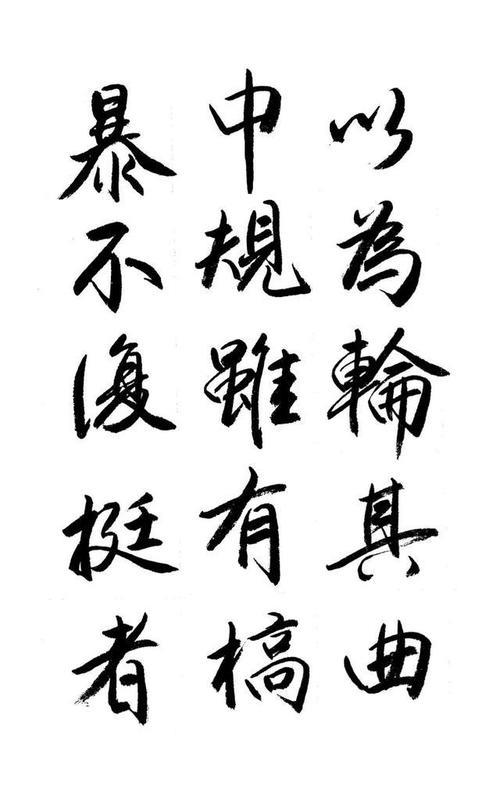 以為輪其曲
中規雖有槁
暴不復挺者